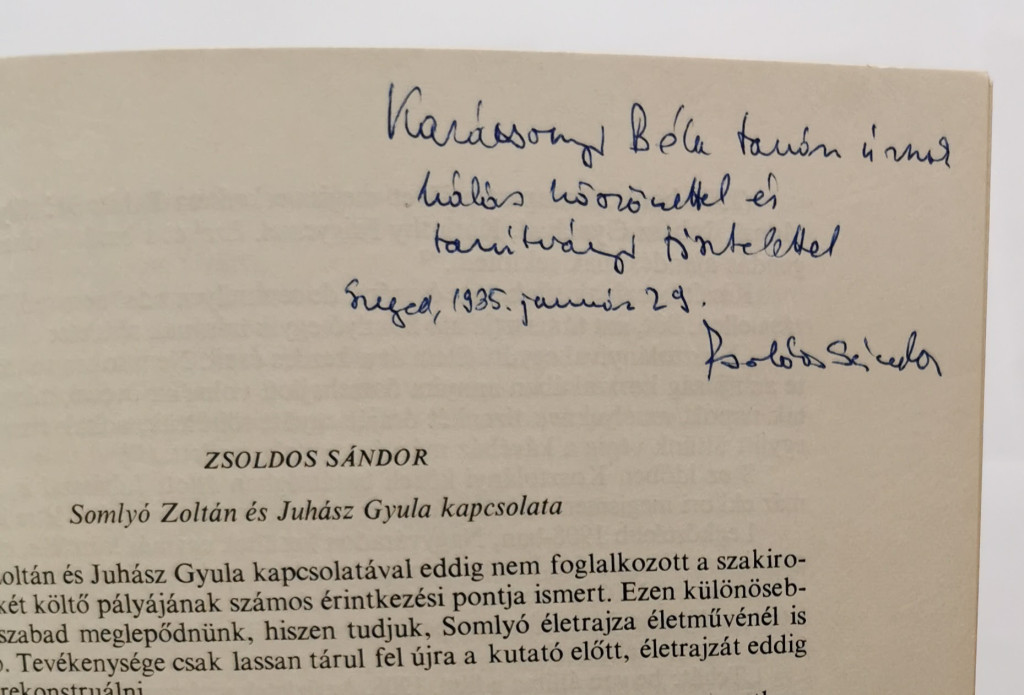 Karácsonyi Béla tanár úrnak
hálás köszönettel és
tanítványi tisztelettel
Szeged, 1985. január 29.
Zsoldos Sándor
ZSOLDOS SÁNDOR
Somlyó Zoltán és Juhász Gyula kapcsolata
oltán és Juhász Gyula kapcsolatával eddig nem foglalkozott a szakiro-
két költő pályájának számos érintkezési pontja ismert. Ezen különöseb-
szabad meglepődnünk, hiszen tudjuk, Somlyó életrajza életművénél is
b. Tevékenysége csak lassan tárul fel újra a kutató előtt, életrajzát eddig
rekonstruálni